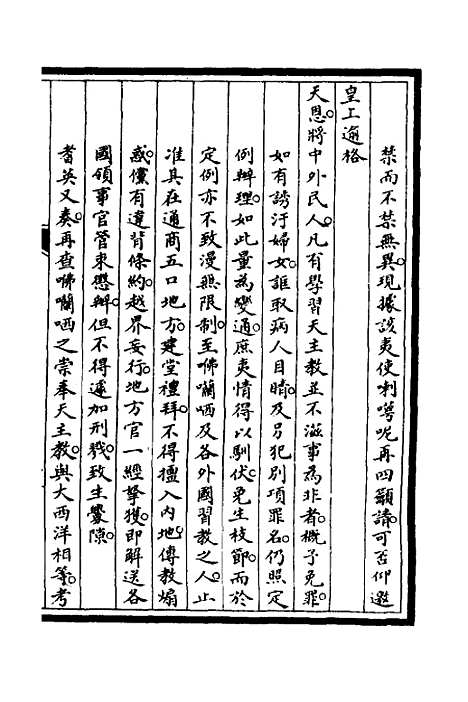 禁而不禁無異。現據該夷使喇噂呢再四籲請。可否仰邀
皇上逾格
天恩。將中外民人。凡有學習天主教並不滋事為非者。概予免罪。
如有誘汙婦女。誆取病人目睛。及另犯別項罪名。仍照定
例辦理。如此量為變通。庶夷情得以馴伏。免生枝節。而於
定例亦不致漫無限制。至咈囒哂及各外國習教之人。止
准其在通商五口地方。建堂禮拜。不得擅入內地。傳教煽
惑。儻有違背條約。越界妄行。地方官一經拏獲。即解送各
國領事官管束懲辦。但不得遽加刑戮。致生釁隙。
耆英又奏。再查咈囒哂之崇奉天主教。與大西洋相等。考